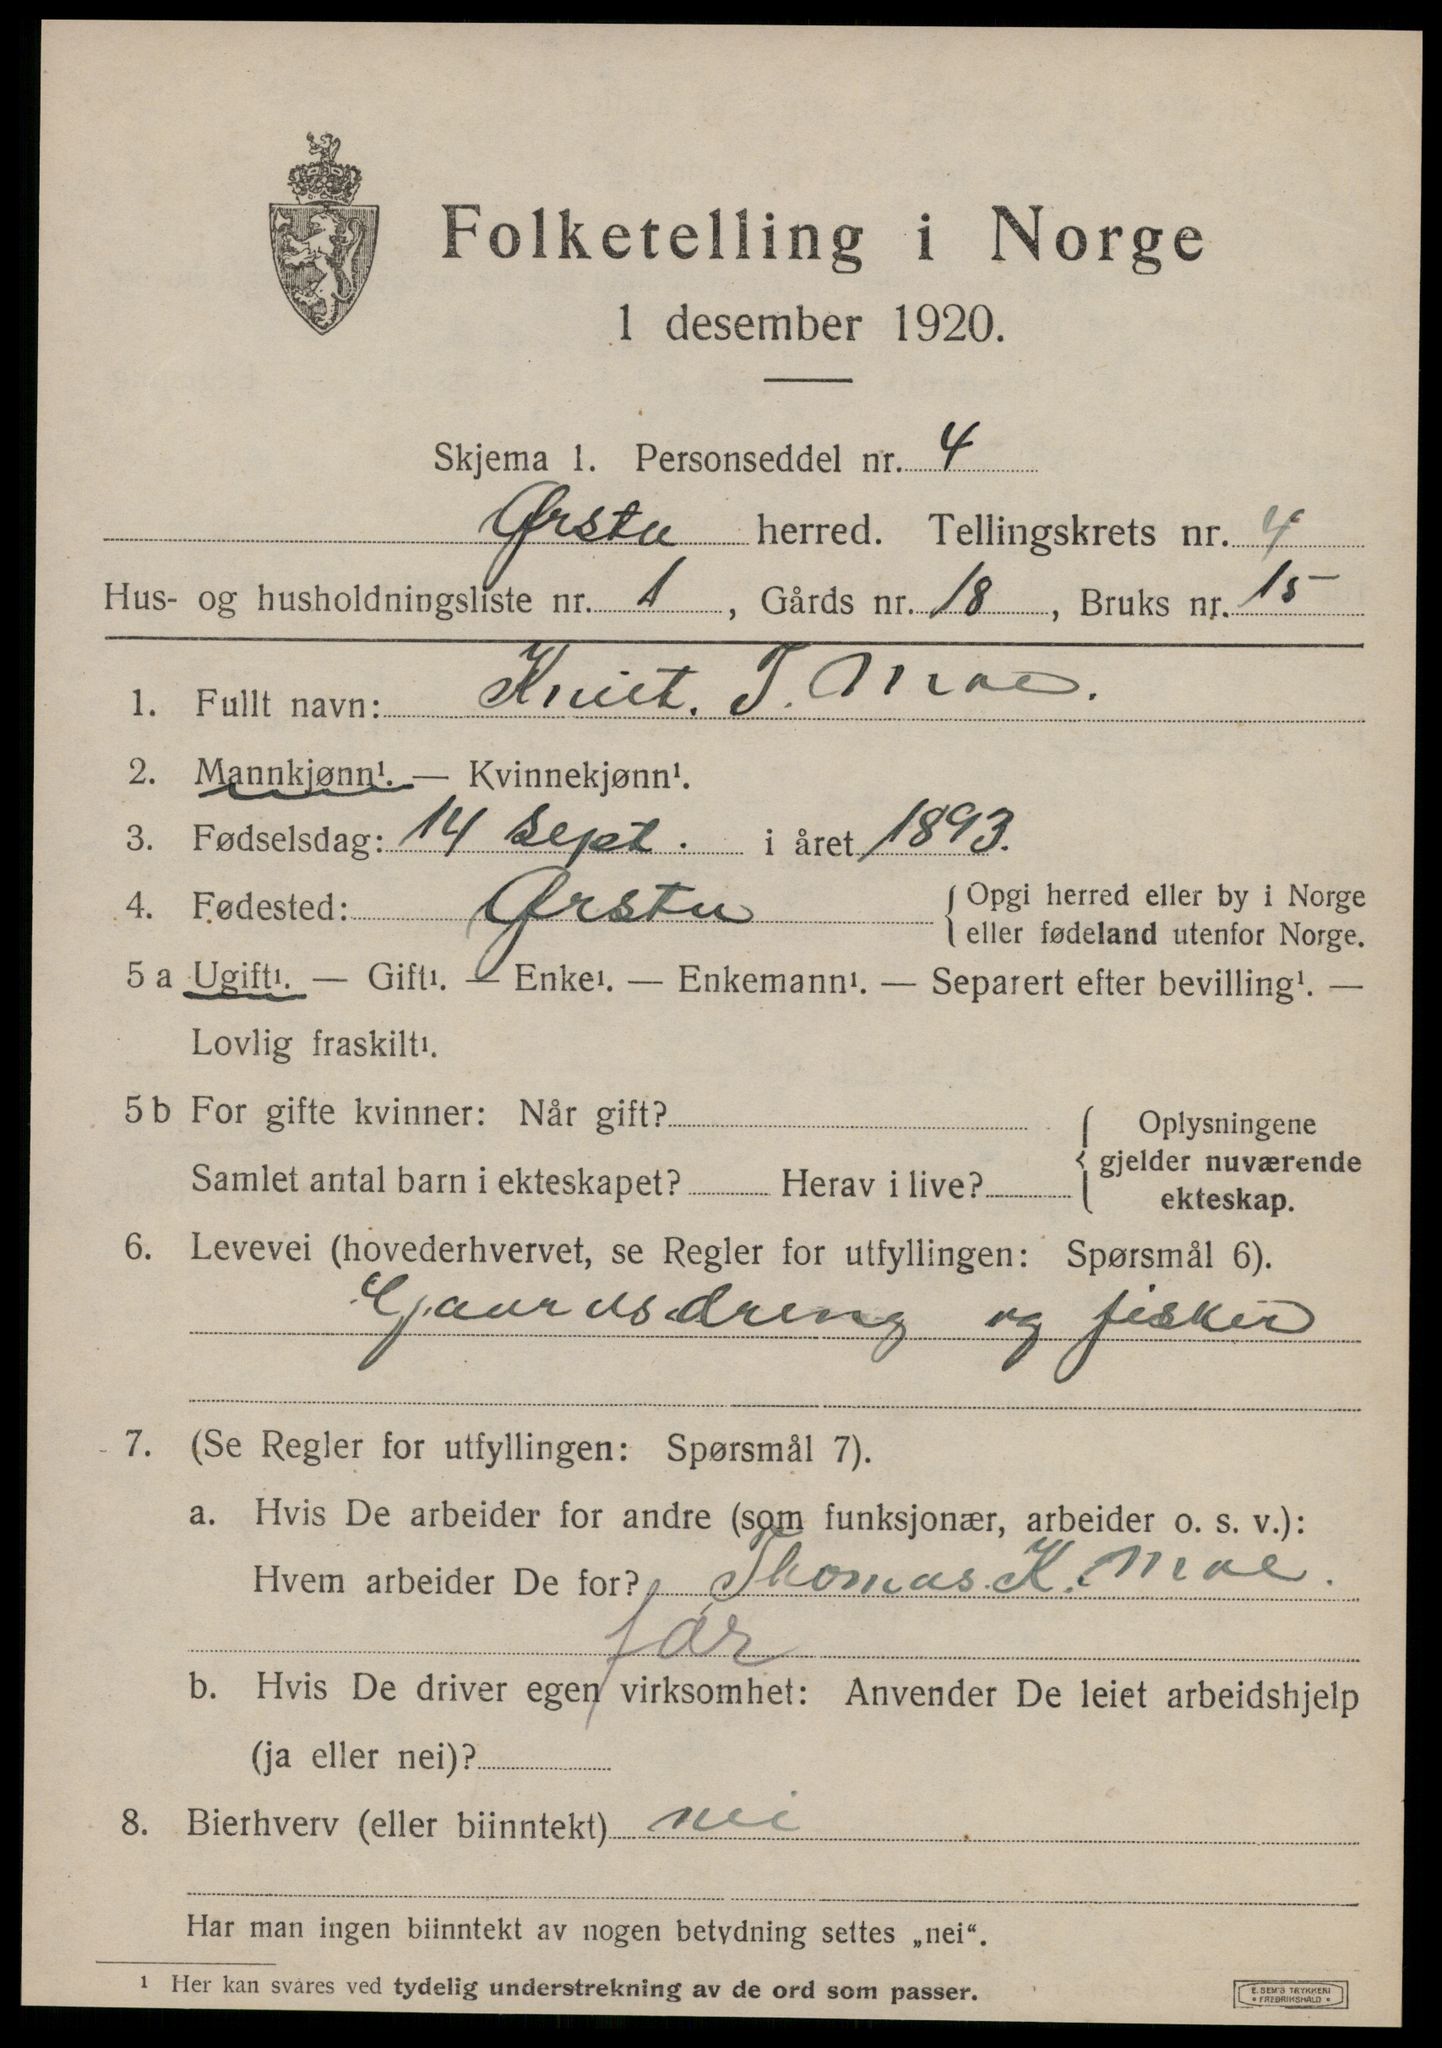 Folketelling i Norge
1 desember 1920.
Skjema 1. Personseddel nr. 4
Ørsta herred. Tellingskrets nr. 4
Hus- og husholdningsliste nr. 1, Gårds nr. 18, Bruks nr. 15
1. Fullt navn: Knut. T. Moe.
2. Mannkjønn¹. — Kvinnekjønn¹.
3. Fødselsdag: 14 Sept. i året 1893.
4. Fødested: Ørsta { Opgi herred eller by i Norge
eller fødeland utenfor Norge.
5 a Ugift¹. — Gift¹. — Enke¹. — Enkemann¹. — Separert efter bevilling¹. —
Lovlig fraskilt¹.
5 b For gifte kvinner: Når gift? { Oplysningene
gjelder nuværende
Samlet antal barn i ekteskapet? Herav i live?
ekteskap.
6. Levevei (hovederhvervet, se Regler for utfyllingen: Spørsmål 6).
Gaardsdreng og fisker
7. (Se Regler for utfyllingen: Spørsmål 7).
a. Hvis De arbeider for andre (som funksjonær, arbeider o. s. v.):
Hvem arbeider De for? Thomas. K. Moe.
far
b. Hvis De driver egen virksomhet: Anvender De leiet arbeidshjelp
(ja eller nei)?
8. Bierhverv (eller biinntekt) nei
Har man ingen biinntekt av nogen betydning settes „nei“.
¹ Her kan svares ved tydelig understrekning av de ord som passer.
E. SEM'S TRYKKERI
• FREDRIKSHALD •